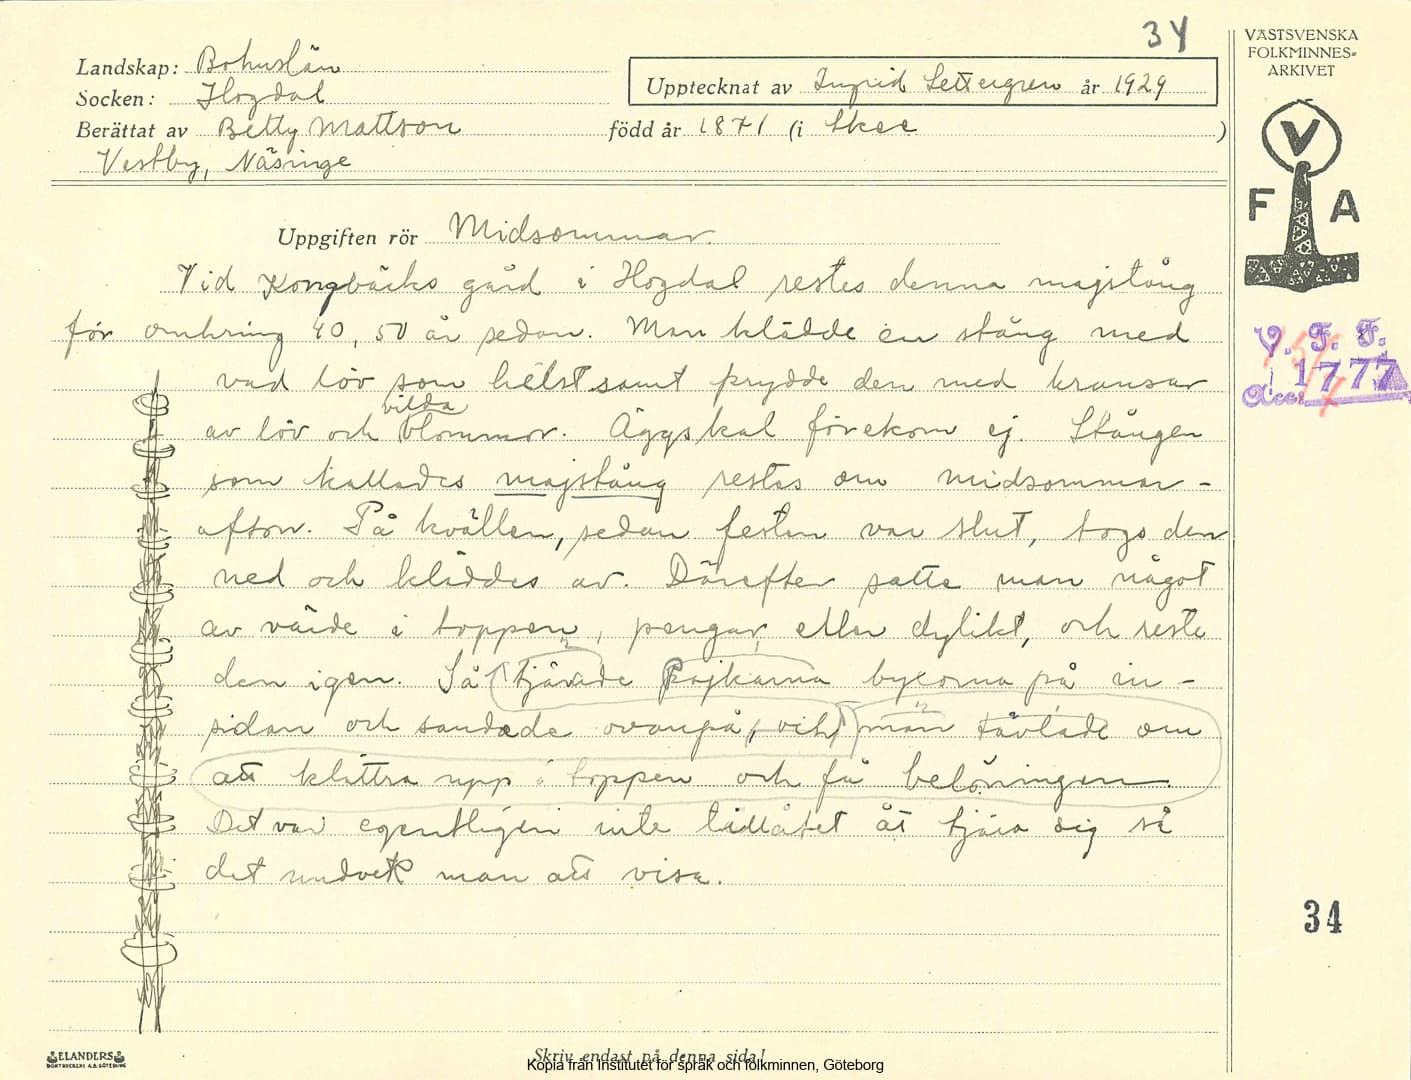 34
VÄSTSVENSKA
FOLKMINNES=
ARKIVET
Landskap: Bohuslän
Socken: Hogdal
Upptecknat av Ingrid Settergren år 1929
Berättat av Betty Mattson född år 1871 (i Skee )
Vestby, Näsinge
V
F A
Uppgiften rör Midsommar.
Vid Kongbäcks gård i Hogdal restes denna majstång
för omkring 40, 50 år sedan. Man klädde en stång med
vad löv som hélst samt prydde den med kransar
vilda
av löv och blommor. Äggskal förekom ej. Stången
som kallades majstång restes om midsommar-
afton. På kvällen, sedan festen var slut, togs den
ned och kläddes av. Därefter satte man något
av värde i toppen, pengar eller dylikt, och reste
den igen. Så tjärade Pojkarna byxorna på in-
sidan och sandade ovanpå, och man tävlade om
att klättra upp i toppen och få belöningen.
Det var egentligen inte tillåtet åt tjära sig så
det undvek man att visa.
V. F. F.
Acc: 1777
34
ELANDERS
BOKTRYCKERI A.B. GÖTEBORG
Skriv endast på denna sida!
Kopia från Institutet för språk och folkminnen, Göteborg